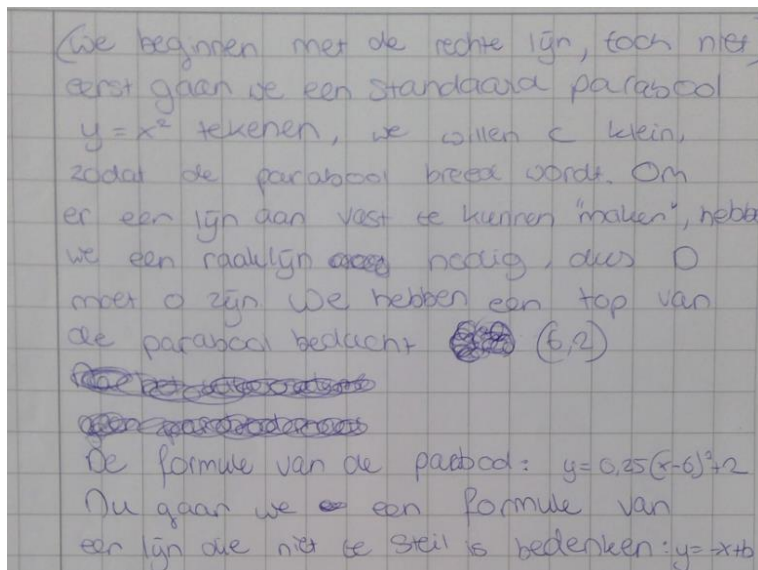 (We beginnen met de rechte lijn, toch niet)
eerst gaan we een standaard parabool
y = x² tekenen, we willen c klein,
zodat de parabool breed wordt. Om
er een lijn aan vast te kunnen "maken", hebb
we een raaklijn nodig, dus D
moet 0 zijn We hebben een top van
de parabool bedacht (6,2)
De formule van de parbool: y = 0,25(x-6)²+2
Nu gaan we een formule van
een lijn die niet te steil is bedenken: y = -x+b